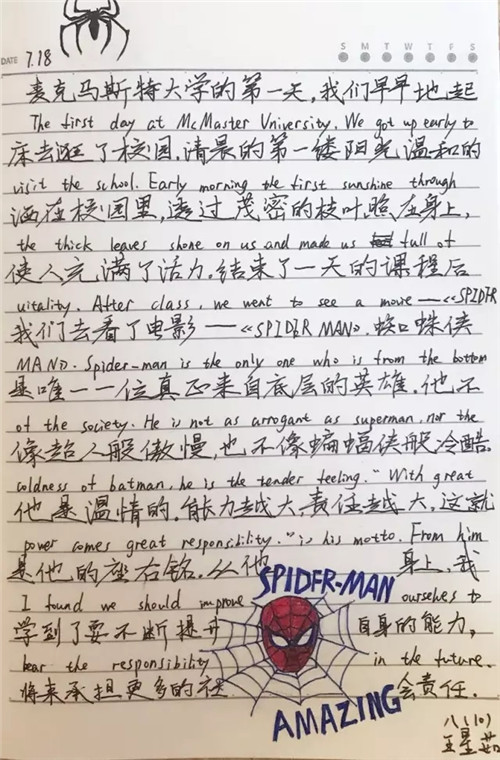 DATE 7.18
S M T W T F S
麦克马斯特大学的第一天,我们早早地起
The first day at McMaster University. We got up early to
床去逛了校园.清晨的第一缕阳光温和的
visit the school. Early morning the first sunshine through
洒在校园里,透过茂密的枝叶照在身上,
the thick leaves shone on us and made us full of
使人充满了活力.结束了一天的课程后
vitality. After class, we went to see a movie —— 《SPIDER
我们去看了电影 —— 《SPIDER MAN》. 蜘蛛侠
MAN》. Spider-man is the only one who is from the bottom
是唯一一位真正来自底层的英雄.他不
of the society. He is not as arrogant as superman, nor the
像超人般傲慢,也不像蝙蝠侠般冷酷.
coldness of batman, he is the tender feeling. "With great
他是温情的.能力越大责任越大,这就
power comes great responsibility." is his motto. From him
是他的座右铭.从他 身上,我
I found we should improve ourselves to
SPIDER-MAN
学到了要不断提升 自身的能力,
bear the responsibility in the future.
将来承担更多的社 会责任.
AMAZING
八(10)
王星茹